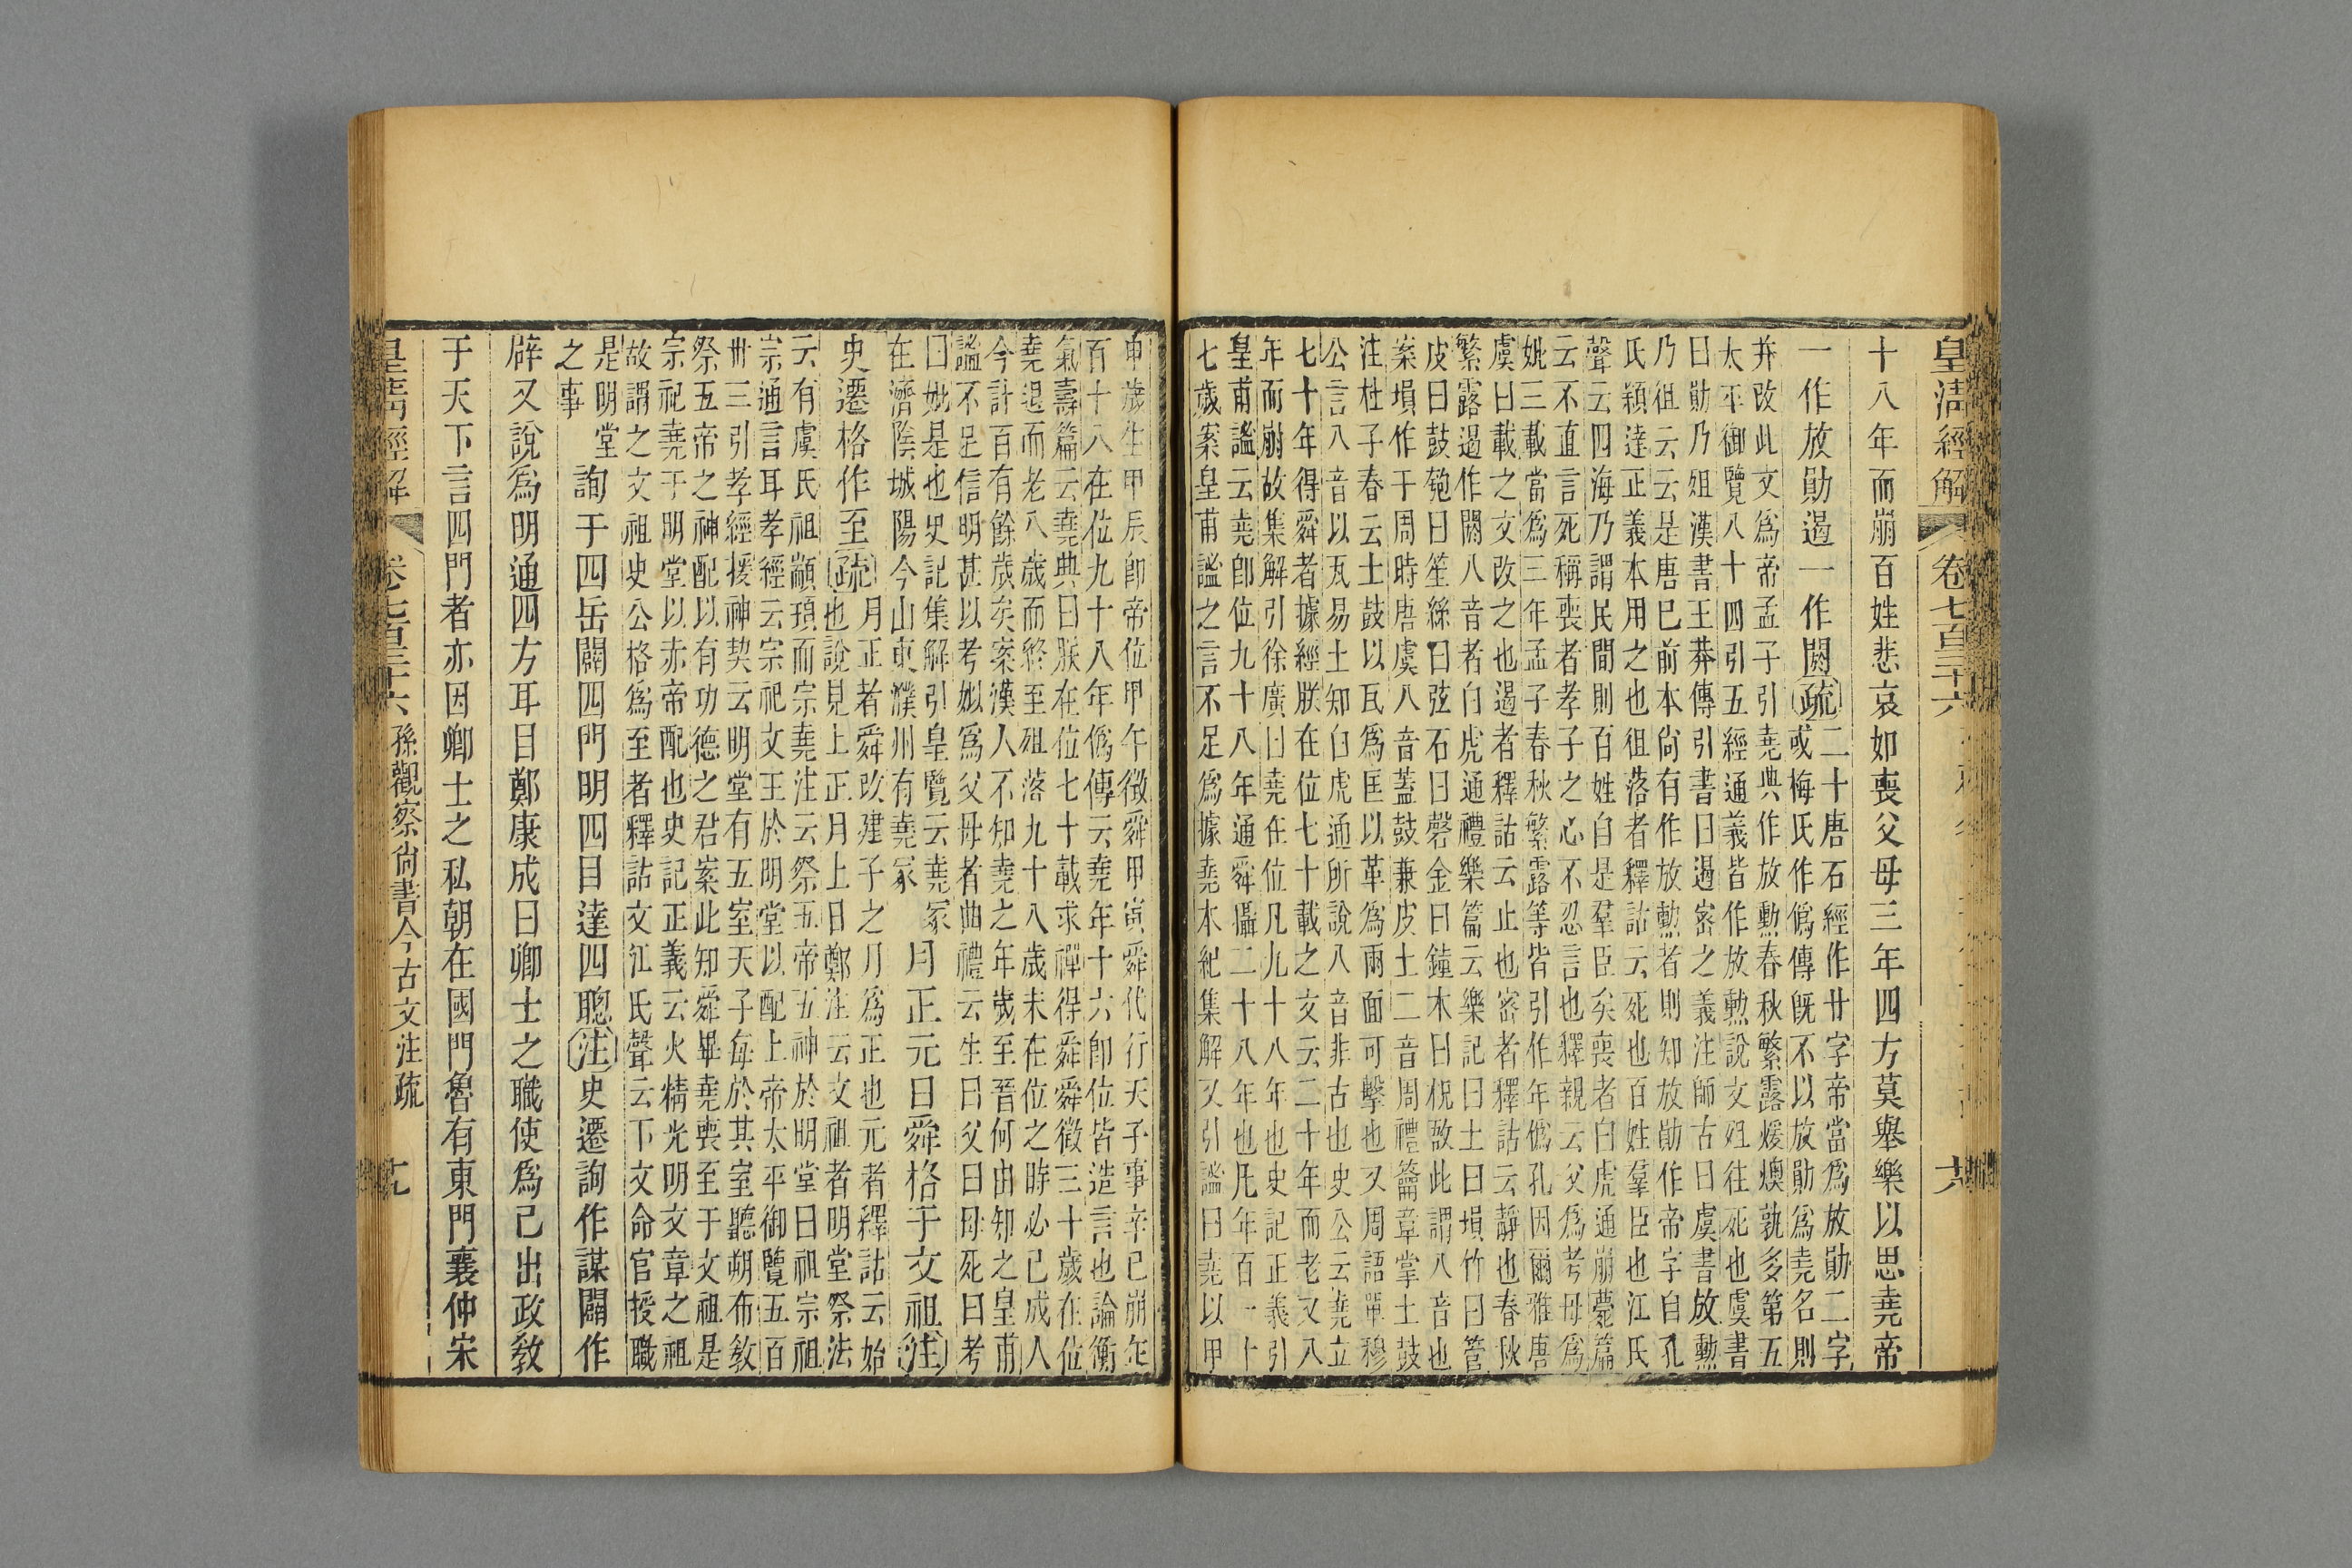 皇清經解
卷七百三十六
十八年而崩百姓悲哀如喪父母三年四方莫舉樂以思堯帝
一作放勛遏一作闕疏二十唐石經作廿字帝當爲放勛二字
或梅氏作僞傳旣不以放勛爲堯名則
并改此文爲帝孟子引堯典作放勳春秋繁露煖燠孰多第五
太平御覽八十四引五經通義皆作放勳說文殂往死也虞書
曰勛乃殂漢書王莽傳引書曰遏密之義注師古曰虞書放勳
乃徂云云是唐已前本尙有作放勳者則知放勛作帝字自孔
氏穎達正義本用之也徂落者釋詁云死也百姓羣臣也江氏
聲云四海乃謂民間則百姓自是羣臣矣喪者白虎通崩薨篇
云不直言死稱喪者孝子之心不忍言也釋親云父爲考母爲
妣三載當爲三年孟子春秋繁露等皆引作年僞孔因爾雅唐
虞曰載之文改之也遏者釋詁云止也密者釋詁云靜也春秋
繁露遏作闕八音者白虎通禮樂篇云樂記曰土曰塤竹曰管
皮曰鼓匏曰笙絲曰弦石曰磬金曰鐘木曰柷敔此謂八音也
案塤作于周時唐虞八音蓋鼓兼皮土二音周禮籥章掌土鼓
注杜子春云土鼓以瓦爲匡以革爲兩面可擊也又周語單穆
公言八音以瓦易土知白虎通所說八音非古也史公云堯立
七十年得舜者據經朕在位七十載之文云二十年而老又八
年而崩故集解引徐廣曰堯在位凡九十八年也史記正義引
皇甫謐云堯卽位九十八年通舜攝二十八年也凡年百一十
七歲案皇甫謐之言不足爲據堯本紀集解又引謐曰堯以甲
申歲生甲辰卽帝位甲午徵舜甲寅舜代行天子事辛巳崩年
百十八在位九十八年僞傳云堯年十六卽位皆造言也論衡
氣壽篇云堯典曰朕在位七十載求禪得舜舜徵三十歲在位
堯退而老八歲而終至殂落九十八歲未在位之時必已成人
今計百有餘歲矣案漢人不知堯之年歲至晉何由知之皇甫
謐不足信明甚以考妣爲父母者曲禮云生曰父曰母死曰考
曰妣是也史記集解引皇覽云堯冢
在濟陰城陽今山東濮州有堯冢
月正元日舜格于文祖注
史遷格作至疏月正者舜改建子之月爲正也元者釋詁云始
也說見上正月上日鄭注云文祖者明堂祭法
云有虞氏祖顓頊而宗堯注云祭五帝五神於明堂曰祖宗祖
宗通言耳孝經云宗祀文王於明堂以配上帝太平御覽五百
卅三引孝經援神契云明堂有五室天子每於其室聽朔布敎
祭五帝之神配以有功德之君案此知舜畢堯喪至于文祖是
宗祀堯于明堂以赤帝配也史記正義云火精光明文章之祖
故謂之文祖史公格爲至者釋詁文江氏聲云下文命官授職
是明堂
之事
詢于四岳闢四門明四目達四聰注史遷詢作謀闢作
辟又說爲明通四方耳目鄭康成曰卿士之職使爲己出政敎
于天下言四門者亦因卿士之私朝在國門魯有東門襄仲宋
皇清經解
卷七百三十六
孫觀察尙書今古文注疏